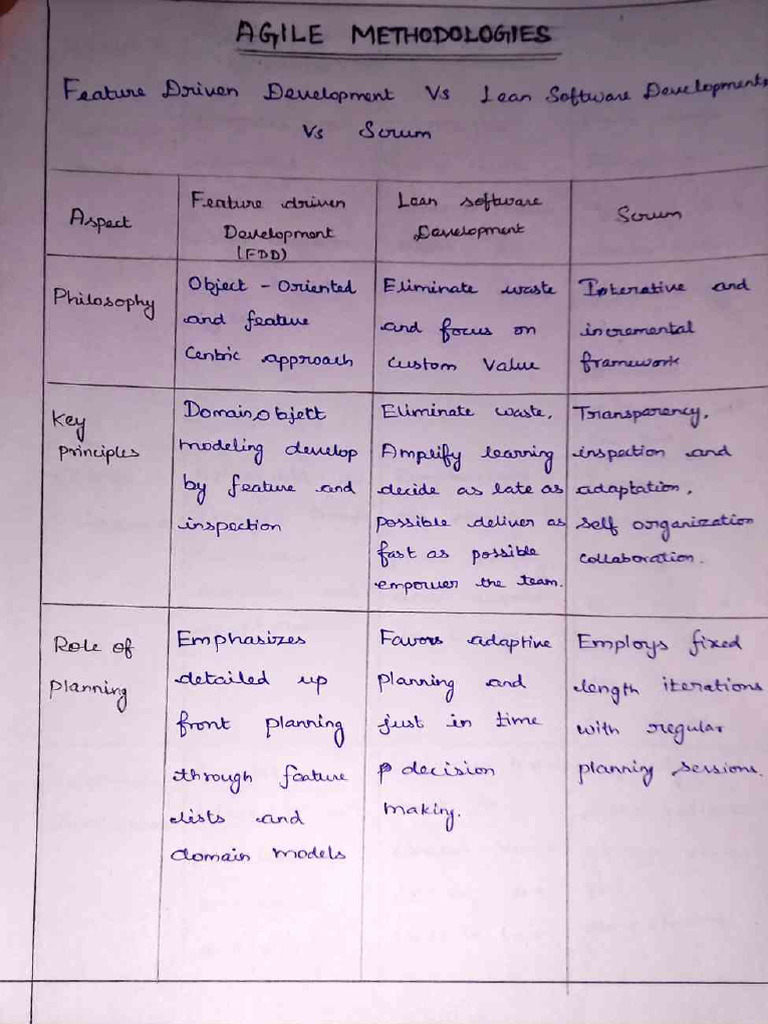 AGILE METHODOLOGIES
Feature Driven Development Vs Lean Software Developments
Vs Scrum
Aspect
Feature driven
Development
(FDD)
Lean software
Development
Scrum
Philosophy
Object - Oriented
and feature
Centric approach
Eliminate waste
and focus on
custom value
Interative and
incremental
framework
Key
principles
Domain, objett
modeling develop
by feature and
inspection
Eliminate waste,
Amplify learning
decide as late as
possible deliver as
fast as possible
empower the team.
Transparency,
inspection and
adaptation,
self organization
collaboration.
Role of
planning
Emphasizes
detailed up
front planning
through feature
lists and
domain models
Favors adaptive
planning and
just in time
p decision
making.
Employs fixed
length iterations
with regular
planning sessions.